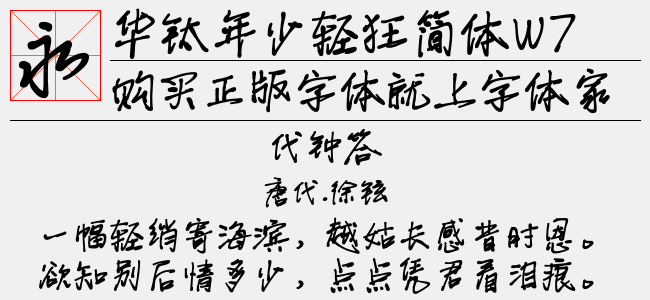 永
华钛年少轻狂简体W7
购买正版字体就上字体家
代钟答
唐代.徐铉
一幅轻绡寄海滨，越姑长感昔时恩。
欲知别后情多少，点点凭君看泪痕。